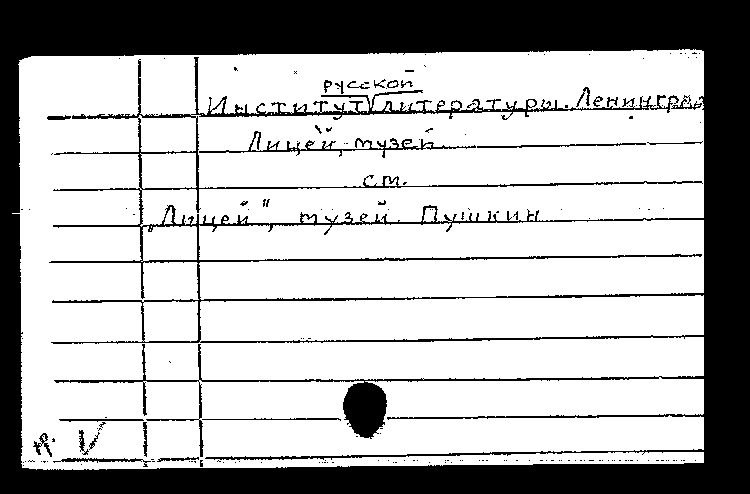 русской
Институт √ литературы. Ленинград
Лицей, музей.
см.
„Лицей", музей. Пушкин